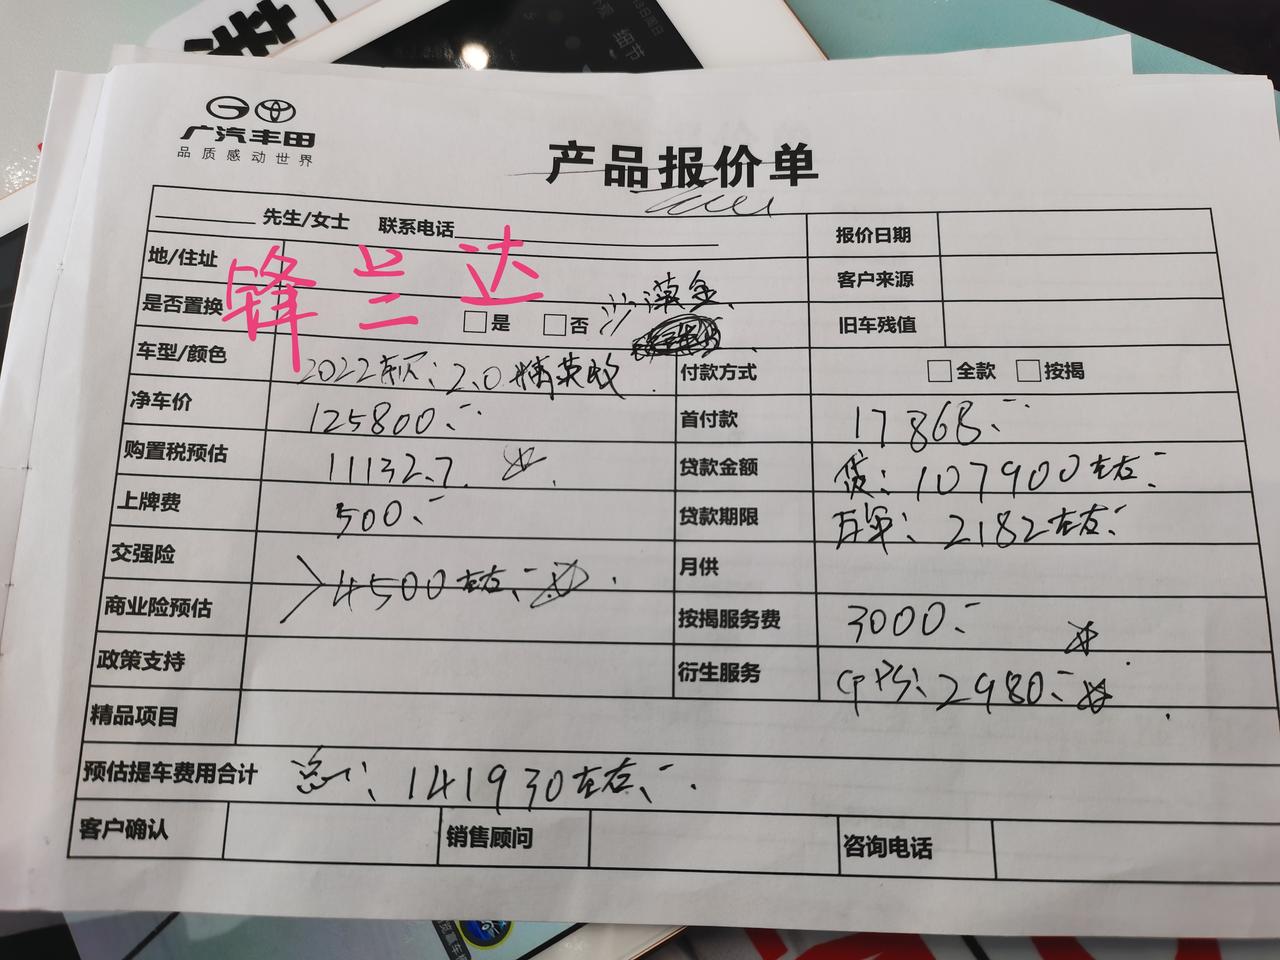 广汽丰田
品质感动世界
产品报价单
先生/女士 联系电话
报价日期
地/住址
客户来源
锋兰达
是否置换 □是 □否
旧车残值
车型/颜色 2022款:2.0精英版
付款方式 □全款 □按揭
净车价 125800
首付款 17868
购置税预估 11132.7
贷款金额 贷:107900左右
上牌费 500
贷款期限 五年:2182左右
交强险
4500左右
月供
商业险预估
按揭服务费 3000
政策支持
衍生服务 GPS:2980
精品项目
预估提车费用合计 总:141930左右
客户确认 销售顾问 咨询电话
细节